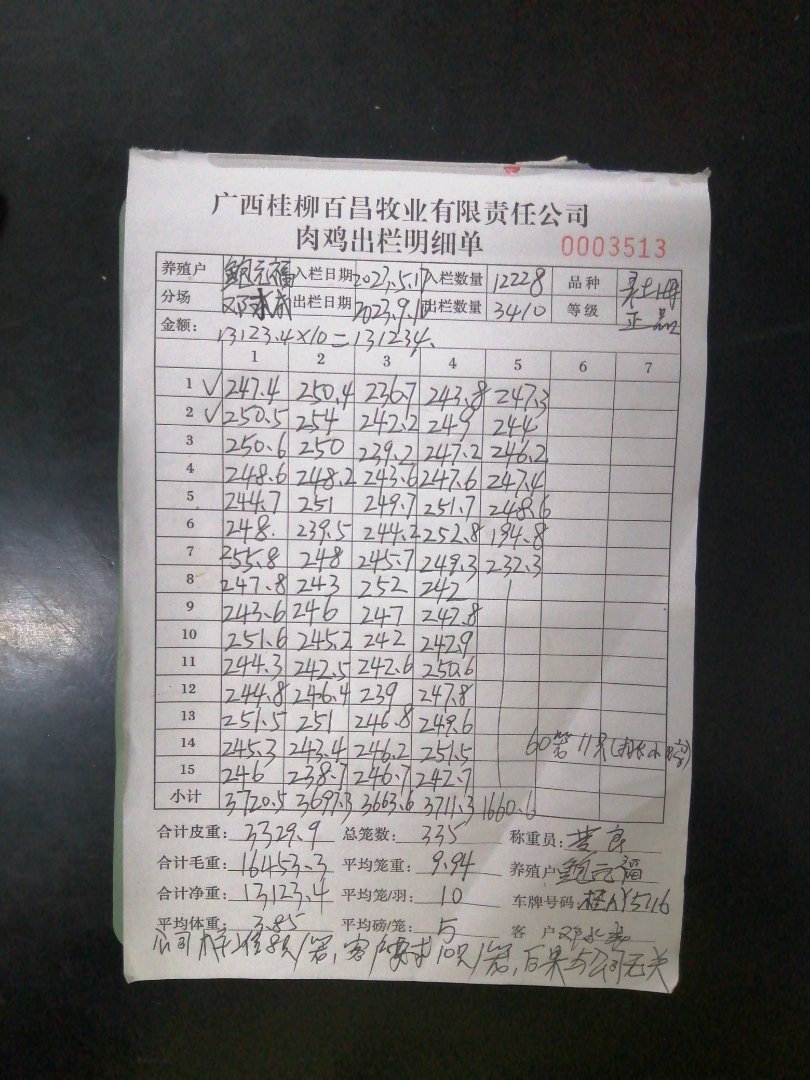 广西桂柳百昌牧业有限责任公司
肉鸡出栏明细单 0003513
养殖户 鲍元福 入栏日期 2023.5.17 入栏数量 12228 品种
分场 出栏日期 2023.9.1 出栏数量 3410 等级 正品
金额: 13123.4×10=131234.
1 2 3 4 5 6 7
1 √ 247.4 250.4 236.7 243.8 247.3
2 √ 250.5 254 242.2 249 244
3 250.6 250 239.2 247.2 246.2
4 248.6 248.2 243.6 247.6 247.4
5 244.7 251 249.7 251.7 248.6
6 248. 239.5 244.2 252.8 194.8
7 255.8 248 245.7 249.3 232.3
8 247.8 243 252 242
9 243.6 246 247 242.8
10 251.6 245.2 242 242.9
11 244.3 242.5 242.6 250.6
12 244.8 246.4 239 247.8
13 251.5 251 246.8 249.6
14 245.3 243.4 246.2 251.5 60笼11只
15 246 238.7 246.7 242.7
小计 3720.5 3697.3 3663.6 3711.3 1660.6
合计皮重: 3329.9 总笼数: 335 称重员:
合计毛重: 16453.3 平均笼重: 9.94 养殖户 鲍元福
合计净重: 13123.4 平均笼/羽: 10 车牌号码: 桂AY5716
平均体重: 3.85 平均磅/笼: 5 客户
公司 只/笼,客户要求10只/笼,后果与公司无关